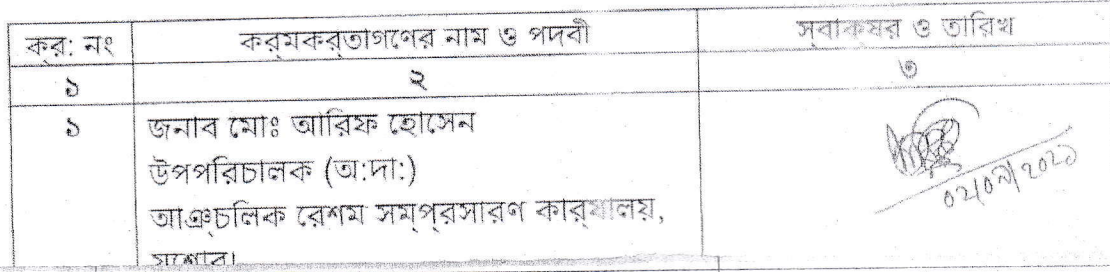 ক্র: নং কর্মকর্তাগণের নাম ও পদবী স্বাক্ষর ও তারিখ
১ ২ ৩
১ জনাব মোঃ আরিফ হোসেন
উপপরিচালক (অ:দা:)
আঞ্চলিক রেশম সম্প্রসারণ কার্যালয়,
যশোর।